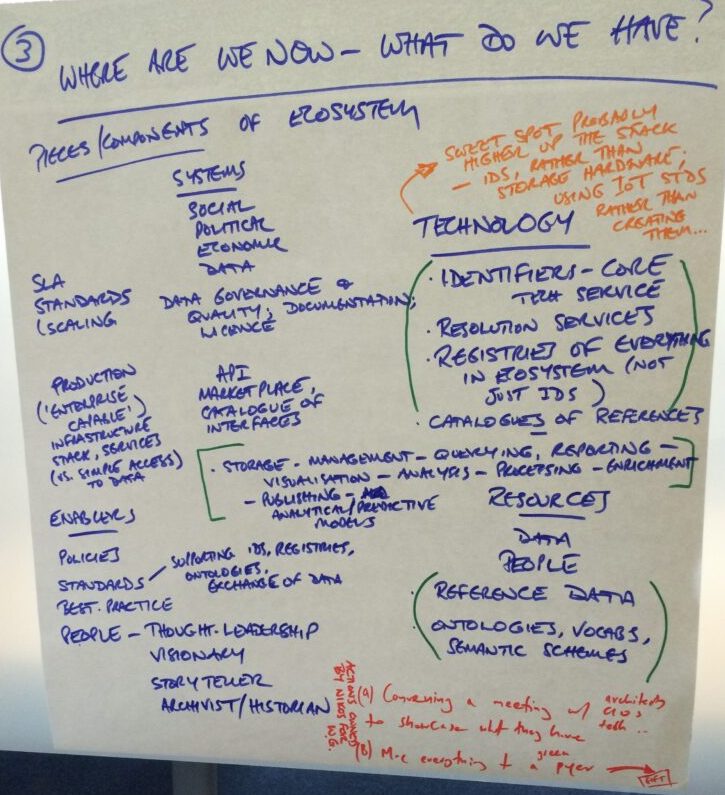 3
WHERE ARE WE NOW – WHAT DO WE HAVE?
PIECES/COMPONENTS OF ECOSYSTEM
SYSTEMS
SOCIAL
POLITICAL
ECONOMIC
DATA
SLA
STANDARDS
(SCALING
DATA GOVERNANCE &
QUALITY; DOCUMENTATION;
LICENCE
PRODUCTION
('ENTERPRISE
CAPABLE')
INFRASTRUCTURE
STACK, SERVICES
(VS. SIMPLE ACCESS)
TO DATA
API
MARKETPLACE,
CATALOGUE OF
INTERFACES
SWEET SPOT PROBABLY
HIGHER UP THE STACK
– IDS, RATHER THAN
STORAGE HARDWARE;
USING IOT STDS
RATHER THAN
CREATING
THEM...
TECHNOLOGY
· IDENTIFIERS – CORE
TECH SERVICE
· RESOLUTION SERVICES
· REGISTRIES OF EVERYTHING
IN ECOSYSTEM (NOT
JUST IDS)
· CATALOGUES OF REFERENCES
· STORAGE – MANAGEMENT – QUERYING, REPORTING –
VISUALISATION – ANALYSIS – PROCESSING – ENRICHMENT
– PUBLISHING –
ANALYTICAL/PREDICTIVE
MODELS
ENABLERS
POLICIES
STANDARDS / SUPPORTING IDS, REGISTRIES,
ONTOLOGIES,
EXCHANGE OF DATA
BEST-PRACTICE
PEOPLE – THOUGHT-LEADERSHIP
VISIONARY
STORYTELLER
ARCHIVIST/HISTORIAN
RESOURCES
DATA
PEOPLE
· REFERENCE DATA
· ONTOLOGIES, VOCABS,
SEMANTIC SCHEMES
ACTIONS OWNED
BY NIKOS FOR
W.G.
(A) Convening a meeting w/ architects
CTOs
tech..
to showcase what they have
(B) everything to a green